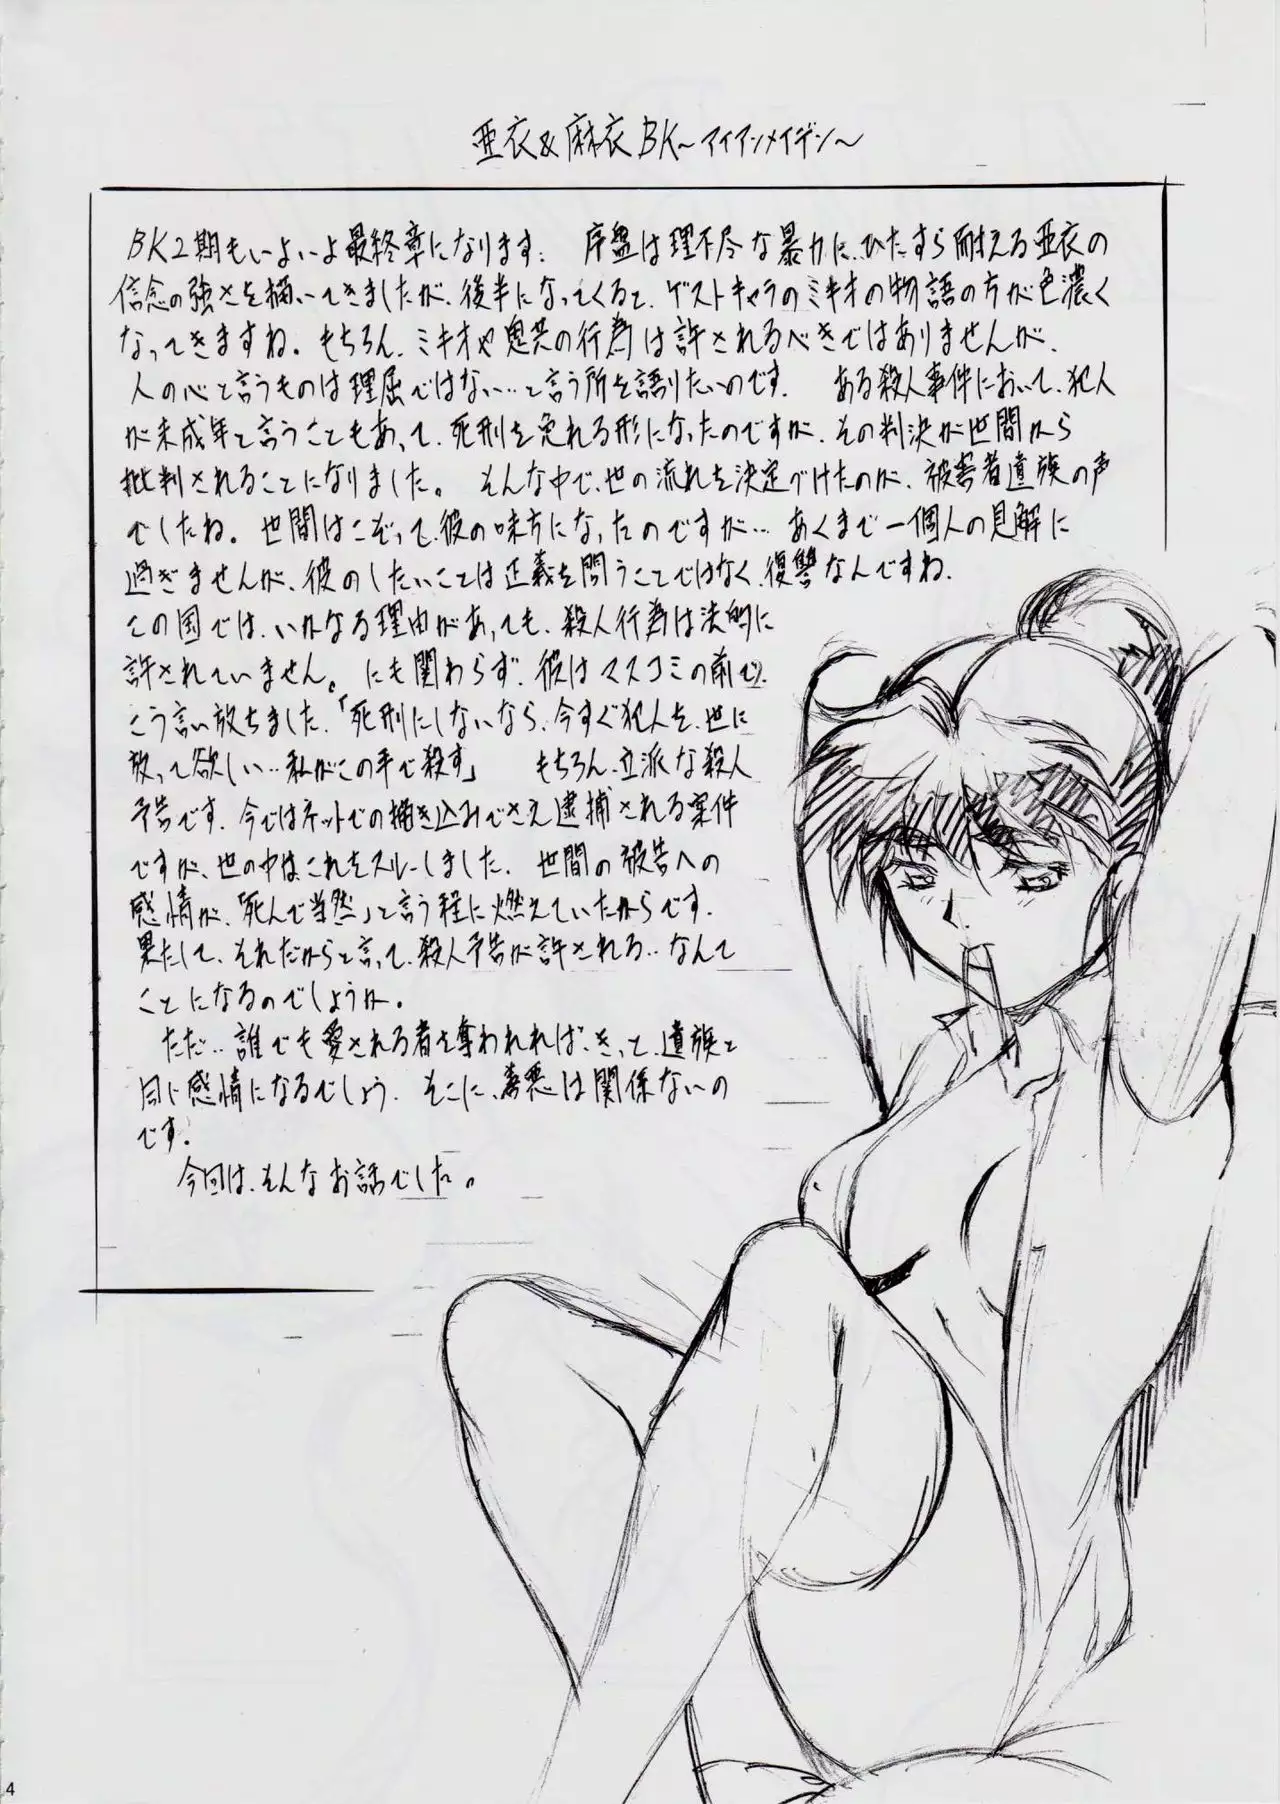 亜衣&麻衣BK～アイアンメイデン～
BK2期もいよいよ最終章になります. 序盤は理不尽な暴力に、ひたすら耐える亜衣の
信念の強さを描いてきましたが、後半になってくると、ゲストキャラのミキオの物語の方が色濃く
なってきますね。もちろん、ミキオや鬼共の行為は許されるべきではありませんが、
人の心と言うものは理屈ではない…と言う所を語りたいのです. ある殺人事件において、犯人
が未成年と言うこともあって、死刑を免れる形になったのですが、その判決が世間から
批判されることになりました。 そんな中で、世の流れを決定づけたのが、被害者遺族の声
でしたね。世間はこぞって、彼の味方になったのですが… あくまで一個人の見解に
過ぎませんが、彼のしたいことは正義を問うことではなく、復讐なんですね.
この国では、いかなる理由があっても、殺人行為は法的に
許されていません。にも関わらず、彼はマスコミの前で、
こう言い放ちました.「死刑にしないなら、今すぐ犯人を、世に
放って欲しい…私がこの手で殺す」 もちろん、立派な殺人
予告です. 今ではネットでの書き込みでさえ逮捕される案件
ですが、世の中は、これをスルーしました. 世間の被告への
感情が、「死んで当然」と言う程に燃えていたからです.
果たして、それだからと言って、殺人予告が許される…なんて
ことになるのでしょうか.
ただ…誰でも愛される者を奪われれば、きっと、遺族と
同じ感情になるでしょう. そこに、善悪は関係ないの
です.
今回は、そんなお話でした。
4